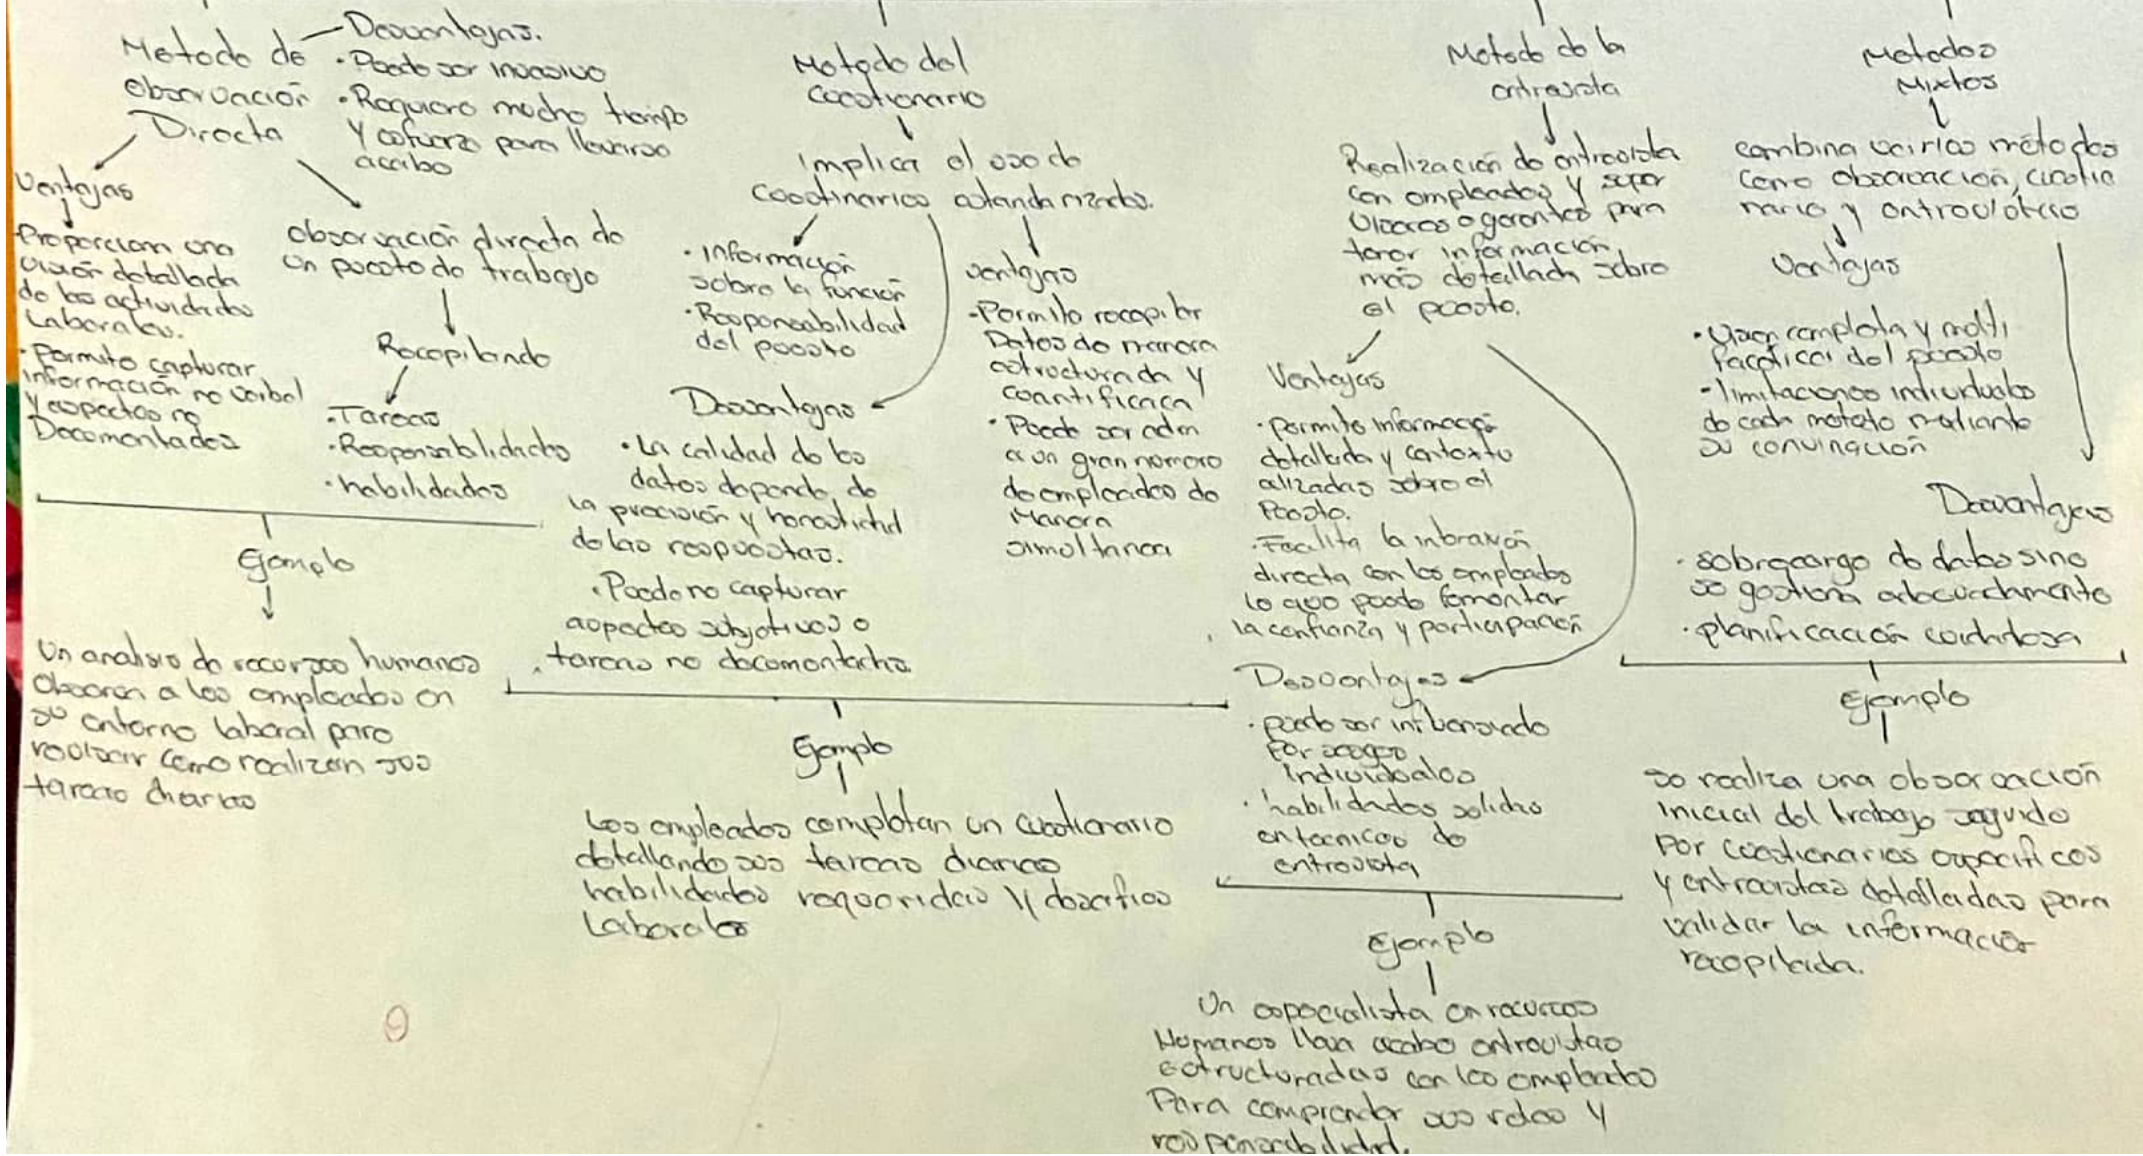 Metodo de
observación
Directa
Desventajas.
• Puede ser invasivo
• Requiere mucho tiempo
y esfuerzo para llevarse
acabo
Ventajas
Proporciona una
visión detallada
de las actividades
Laborales.
• Permite capturar
información no verbal
y aspectos no
Documentados
observación directa de
un puesto de trabajo
Recopilando
• Tareas
• Responsabilidades
• habilidades
Ejemplo
Un analisis de recursos humanos
observan a los empleados en
su entorno laboral para
como realizan sus
tareas diarias
Metodo del
Cuestionario
implica el uso de
cuestinarios estandarizados.
• Información
sobre la función
• Responsabilidad
del puesto
ventajas
• Permite recopilar
Datos de manera
estructurada y
• Puede ser
a un gran numero
de empleados de
Manera
simultanea
Desventajas
• La calidad de los
datos depende de
la precisión y honestidad
de las respuestas.
• Puede no capturar
aspectos subjetivos o
tareas no documentadas
Ejemplo
Los empleados completan un cuestionario
detallando sus tareas diarias
habilidades requeridas y desafios
Laborales
Metodo de la
entrevista
Realización de entrevista
con empleados y super
visores o gerentes para
tener información
más detallada sobre
el puesto.
Ventajas
• permite información
detallada y contextu
alizadas sobre el
Puesto.
• Facilita la
directa con los empleados
lo que puede fomentar
la confianza y participación
Desventajas
• puede ser
Por sesgos
Individuales
• habilidades solidas
en tecnicas de
entrevista
Ejemplo
Un especialista en recursos
Humanos lleva acabo entrevistas
estructuradas con los empleados
Para comprender sus roles y
responsabilidad.
Metodos
Mixtos
combina varios métodos
como observación, cuestio
nario y
Ventajas
• Vision completa y multi
del puesto
• limitaciones individuales
de cada metodo mediante
su convinación
Desventajas
• sobrecarga de datos sino
se gestiona adecuadamente
• planificacación cuidadosa
Ejemplo
se realiza una observación
inicial del trabajo seguido
por cuestionarios especificos
y entrevistas detalladas para
validar la información
recopilada.
9